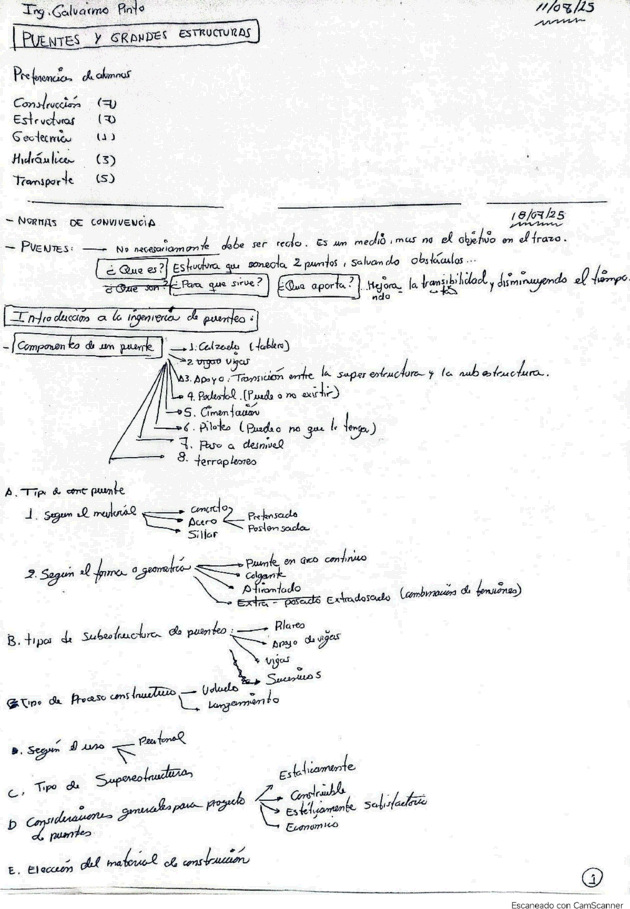 Ing. Galvarino Pinto
11/08/25
PUENTES Y GRANDES ESTRUCTURAS
Preferencia de alumnos
Construcción (7)
Estructuras (7)
Geotecnia (1)
Hidráulica (3)
Transporte (5)
18/07/25
- NORMAS DE CONVIVENCIA
- PUENTES: No necesariamente debe ser recto. Es un medio, mas no el objetivo en el trazo.
¿Que es? Estructura que conecta 2 puntos, salvando obstáculos...
¿Que son? ¿Para que sirve? ¿Que aporta? ...Mejora la transibilidad y disminuyendo el tiempo.
ndo
Introducción a la ingeniería de puentes:
- Componentes de un puente
1. Calzada (tablero)
2. vigas Vigas
3. Apoyo: Transición entre la superestructura y la subestructura.
4. Pedestal. (Puede o no existir)
5. Cimentación
6. Pilotes (Puede o no que lo tenga)
7. Paso a desnivel
8. terraplenes
A. Tipo de puente
1. Según el material
concreto
Acero
Sillar
Pretensado
Postensada
2. Según el forma o geometría
Puente en arco continuo
Colgante
Atirantado
Extradosado (combinación de tensiones)
B. tipos de Subestructura de puentes:
Pilares
Apoyo de vigas
Vigas
Sucesivos
Tipo de Proceso constructivo
Volado
Lanzamiento
. Según el uso
Peatonal
C. Tipo de Superestructuras
D Consideraciones generales para proyecto
de puentes
Estáticamente
Construible
Estéticamente Satisfactorio
Economico
E. Elección del material de construcción
1
Escaneado con CamScanner